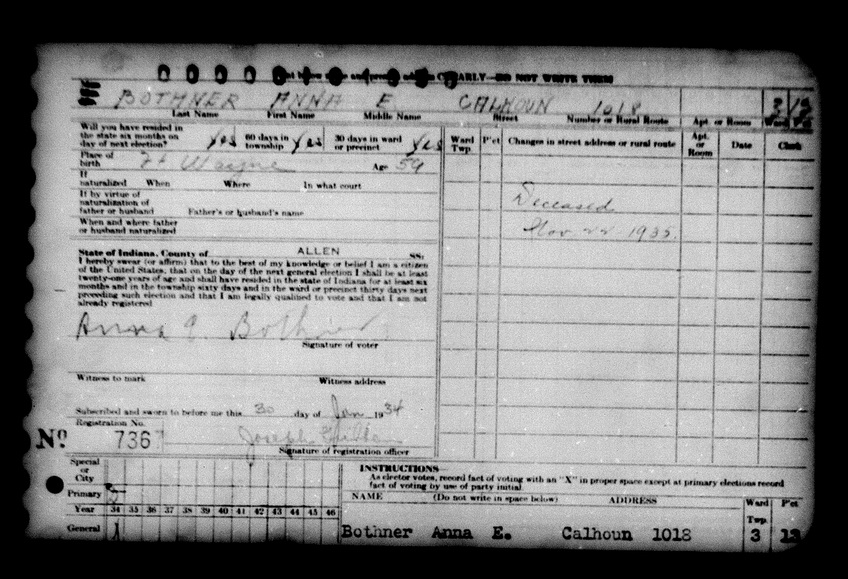 CLEARLY—DO NOT WRITE THEM
BOTHNER ANNA E CALHOUN 1018
Last Name First Name Middle Name Street Number or Rural Route Apt. or Room Ward Pct
Will you have resided in the state six months on day of next election? Yes 60 days in township Yes 30 days in ward or precinct Yes
Ward Twp. P'ct Changes in street address or rural route Apt. or Room Date Clerk
Place of birth Ft Wayne Age 59
If naturalized When Where In what court
Deceased
If by virtue of naturalization of father or husband Father's or husband's name
When and where father or husband naturalized
Nov 22 1935.
State of Indiana, County of ALLEN SS:
I hereby swear (or affirm) that to the best of my knowledge or belief I am a citizen
of the United States, that on the day of the next general election I shall be at least
twenty-one years of age and shall have resided in the state of Indiana for at least six
months and in the township sixty days and in the ward or precinct thirty days next
preceding such election and that I am legally qualified to vote and that I am not
already registered
Anna E. Bothner
Signature of voter
Witness to mark Witness address
Subscribed and sworn to before me this 30 day of Jan 1934
Registration No.
No 7367 Joseph
Signature of registration officer
Special or City
Primary
Year 34 35 36 37 38 39 40 41 42 43 44 45 46
General
INSTRUCTIONS
As elector votes, record fact of voting with an "X" in proper space except at primary elections record
fact of voting by use of party initial.
NAME (Do not write in space below) ADDRESS Ward Twp. P'ct
Bothner Anna E. Calhoun 1018 3 12